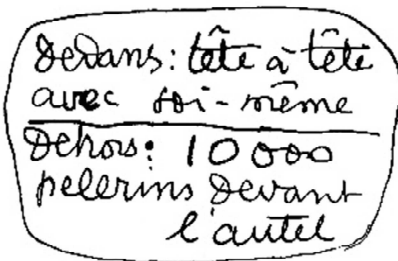 Dedans: tête à tête
avec soi-même
Dehors: 10 000
pelerins devant
l'autel